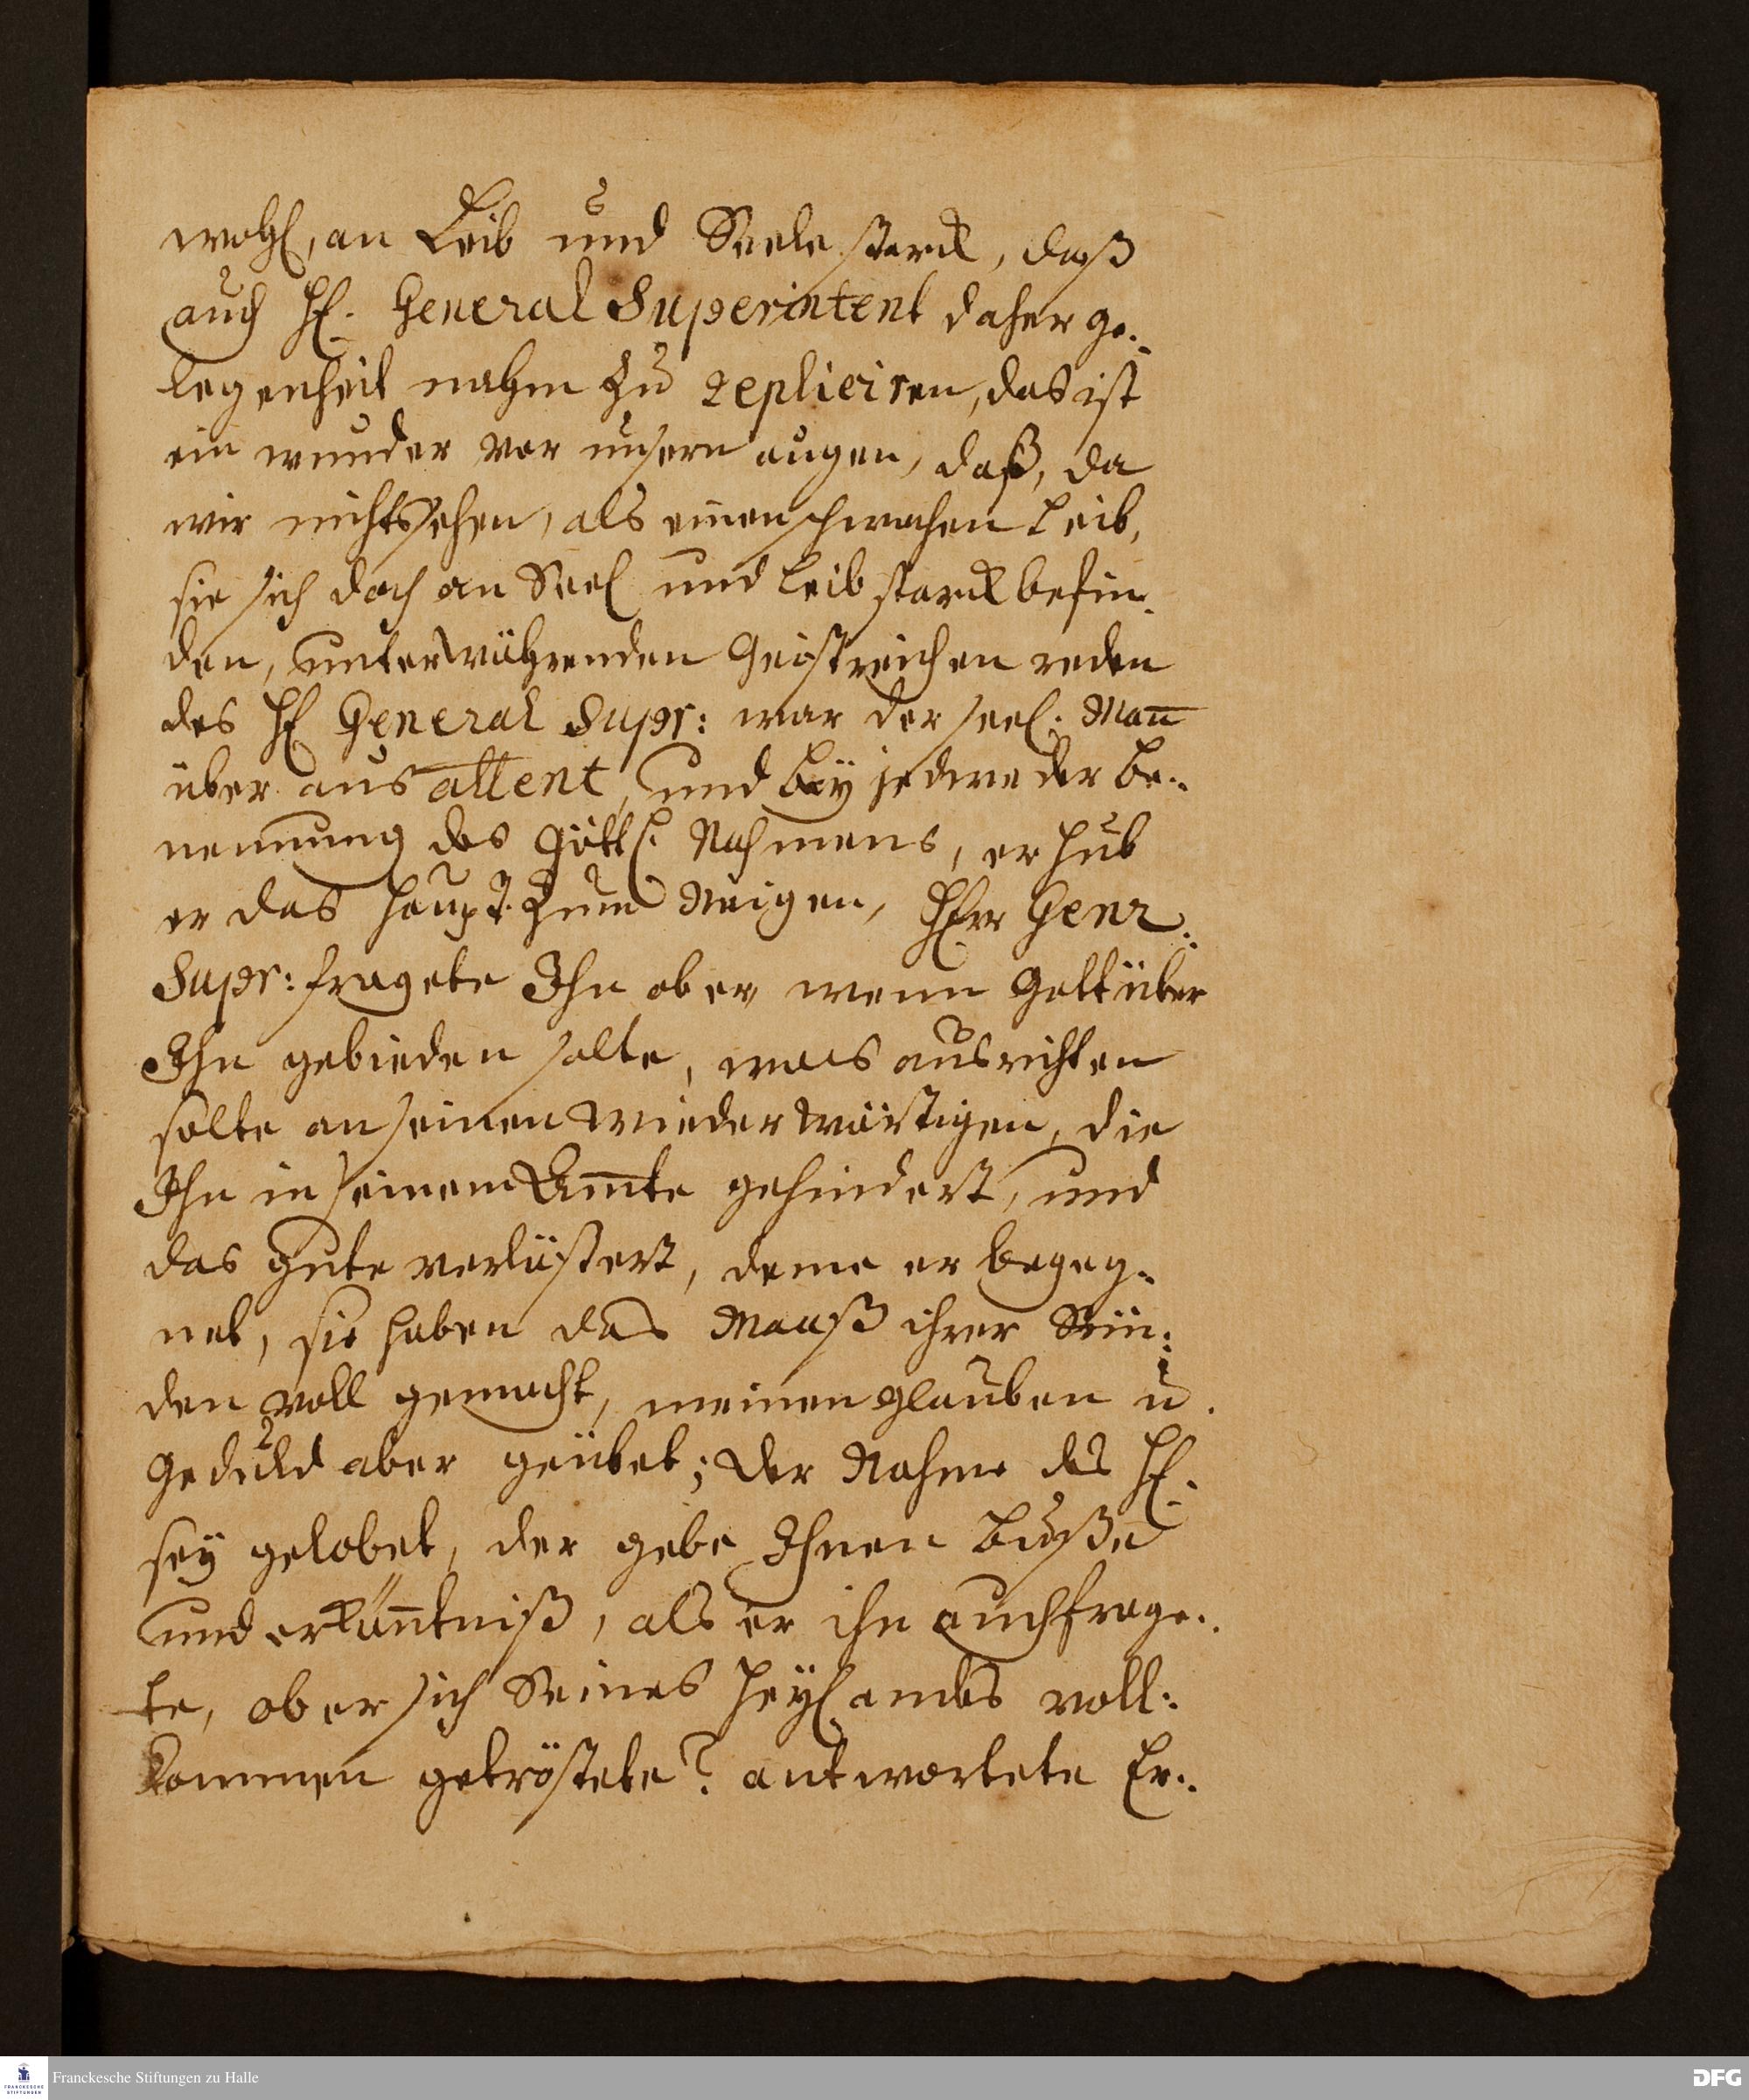 wohl, an Leib und Seele starck, daß
auch H. General Superintent daher ge-
legenheit nahm zu repliciren, das ist
ein wunder vor unsern augen, daß, da
wir nichts sehen, als einen schwachen Leib,
sie sich doch an Seel und Leib starck befin-
den, unter währenden Geistreichen reden
des H General Supr: war der seel. Man̄
über aus attent, und bey jedweder be-
nennung des Göttl. Nahmens, erhub
er das Haupt zum Neigen, Herr Genr.
Supr: fragete Ihn aber, wenn Gott über
Ihn gebieden solte, was ausrichten
solte an seinen wiederwärtigen, die
Ihn in seinem Am̄te gehindert, und
das gute verlästert, deme er begeg-
net, sie haben das Maaß ihrer Sün-
den voll gemacht, meinen glauben u.
Geduld aber geübet; der Nahme des H.
sey gelobet, der gebe Ihnen buße
und erkän̄tniß, als er ihn auch frage-
te, ob er sich Seines Heylandes voll-
kommen getröstete? antwortete Er.
Franckesche Stiftungen zu Halle
FRANCKESCHE STIFTUNGEN
DFG